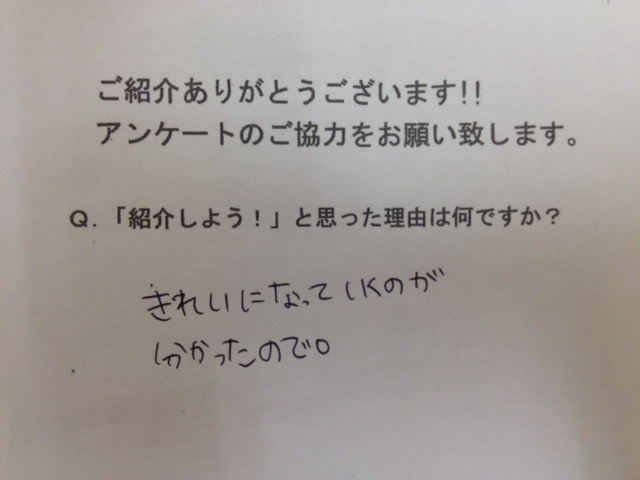 ご紹介ありがとうございます!!
アンケートのご協力をお願い致します。
Q.「紹介しよう!」と思った理由は何ですか？
きれいになっていくのが
分かったので。